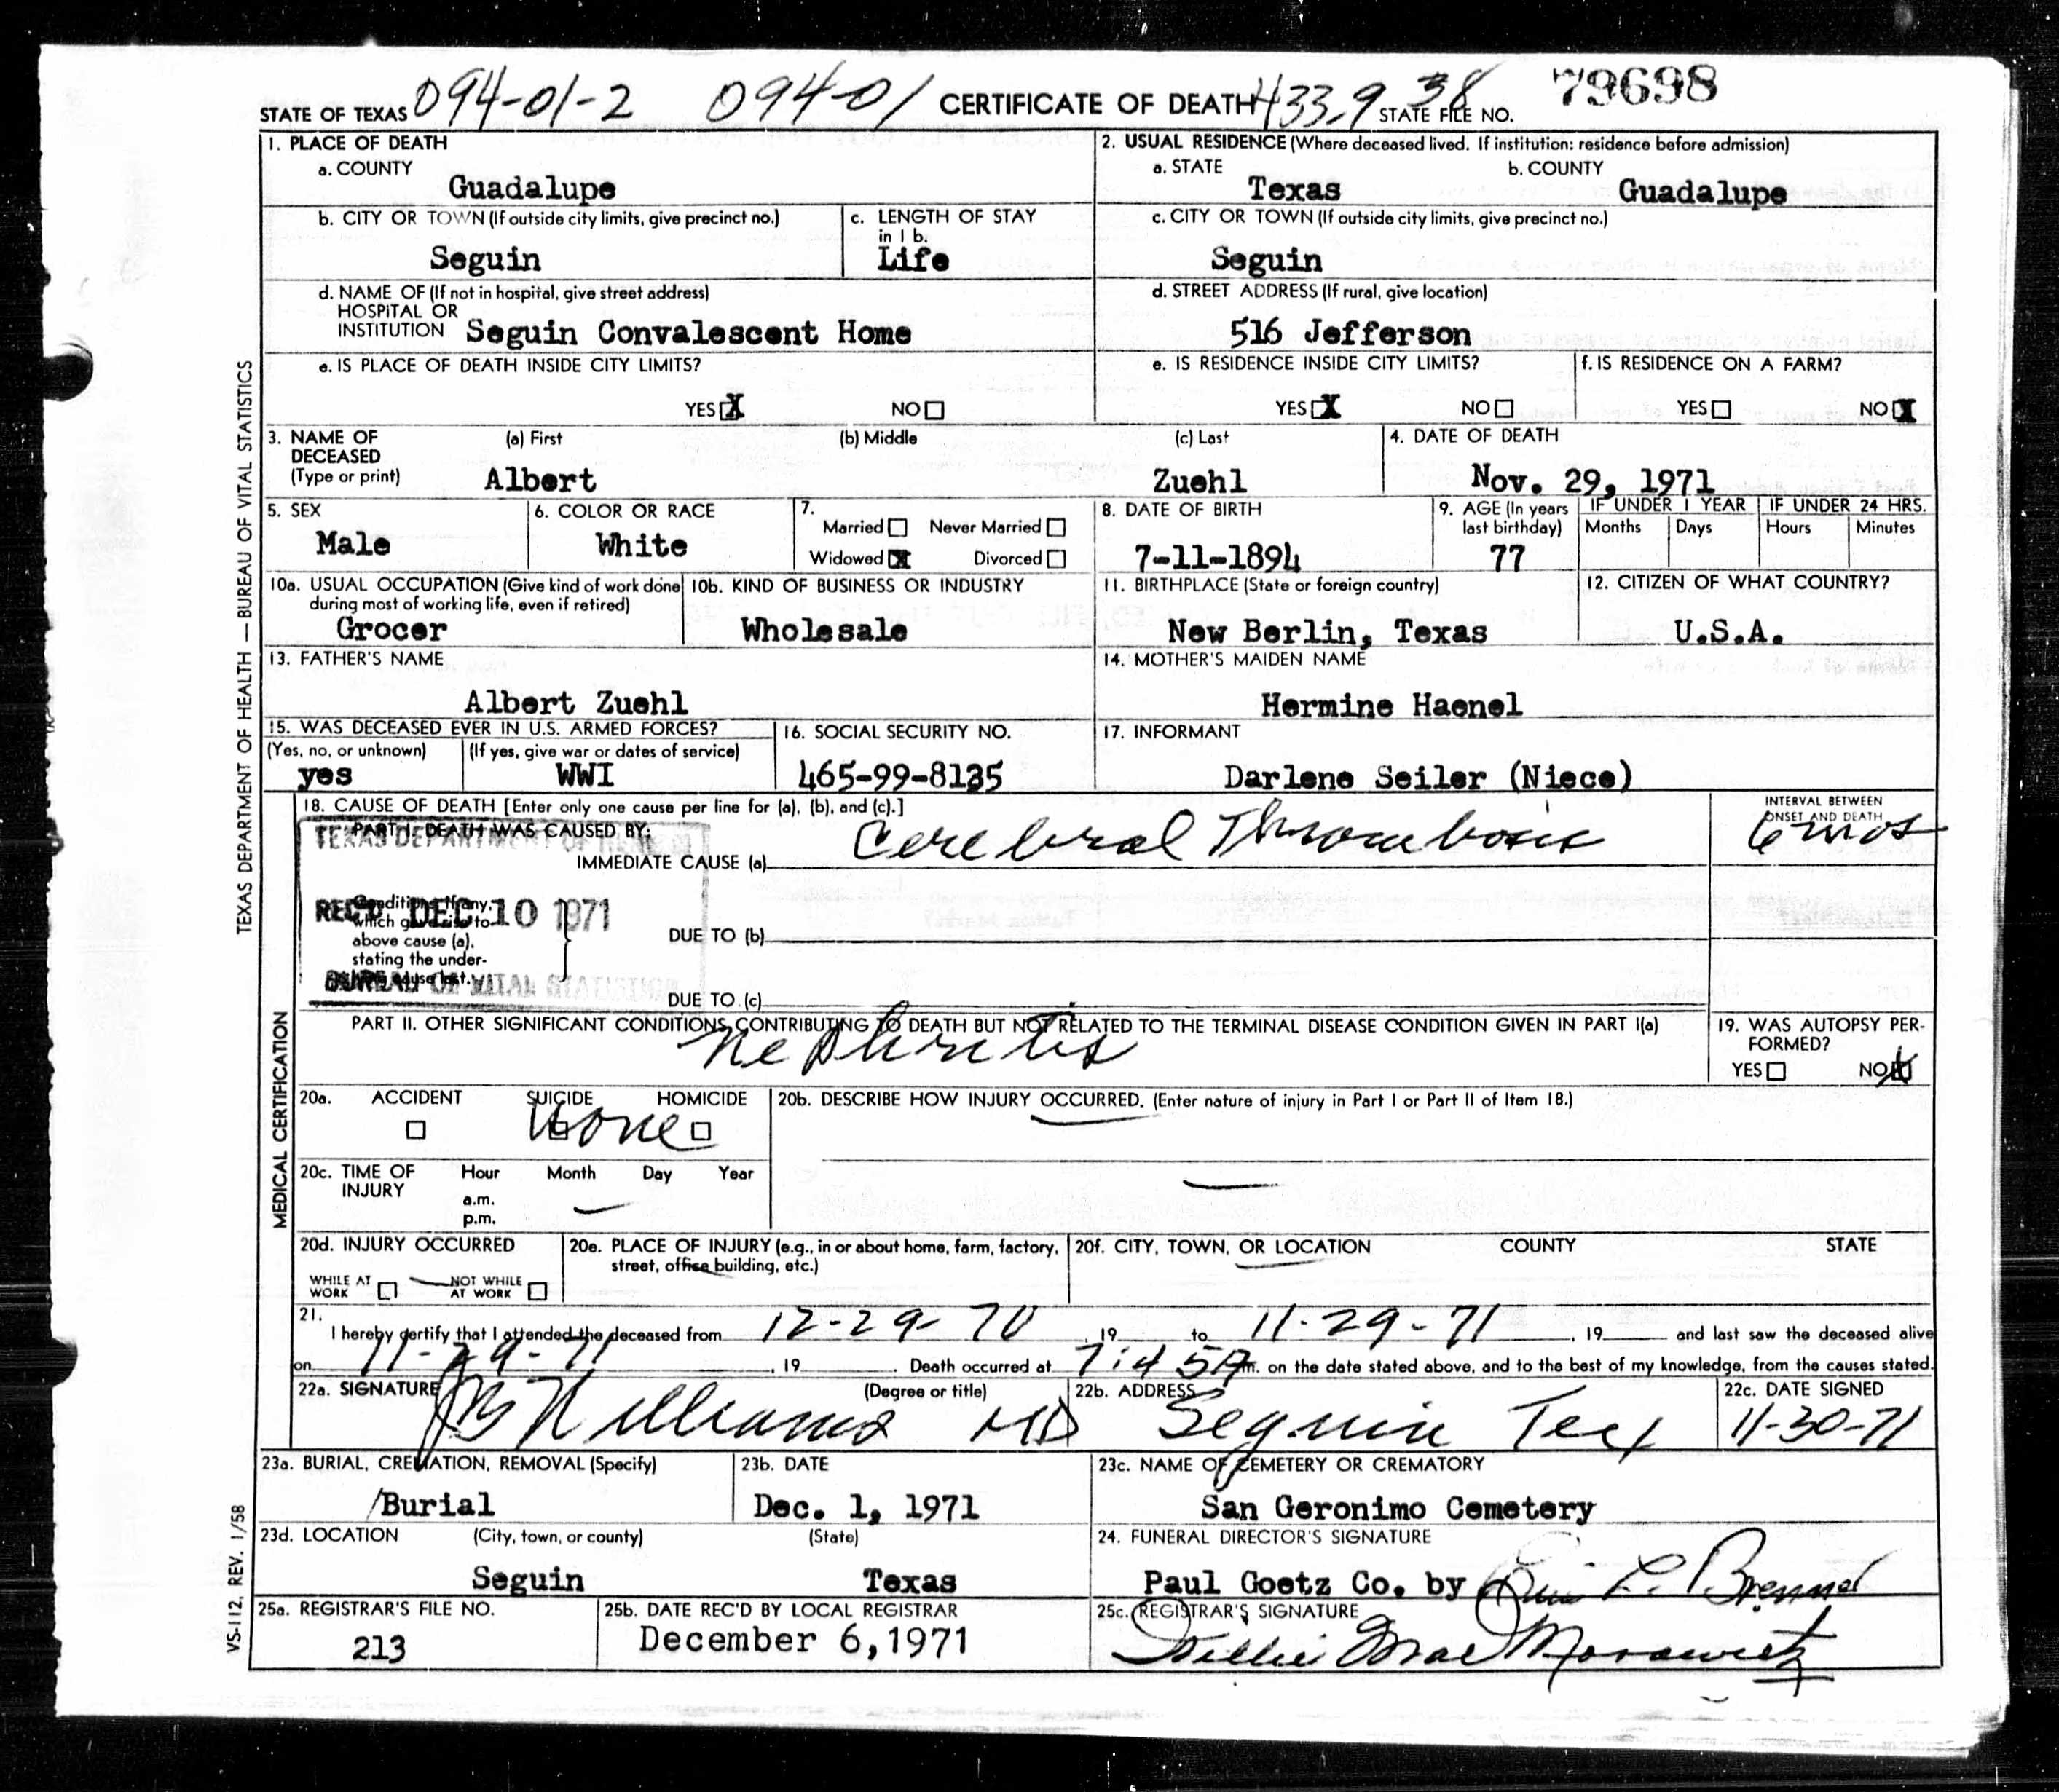 STATE OF TEXAS 094-01-2 094-01 CERTIFICATE OF DEATH 433.9 38 STATE FILE NO. 79698
TEXAS DEPARTMENT OF HEALTH — BUREAU OF VITAL STATISTICS
1. PLACE OF DEATH
a. COUNTY
Guadalupe
2. USUAL RESIDENCE (Where deceased lived. If institution: residence before admission)
a. STATE b. COUNTY
Texas Guadalupe
b. CITY OR TOWN (If outside city limits, give precinct no.)
Seguin
c. LENGTH OF STAY
in 1 b.
Life
c. CITY OR TOWN (If outside city limits, give precinct no.)
Seguin
d. NAME OF (If not in hospital, give street address)
HOSPITAL OR
INSTITUTION Seguin Convalescent Home
d. STREET ADDRESS (If rural, give location)
516 Jefferson
e. IS PLACE OF DEATH INSIDE CITY LIMITS?
YES X NO
e. IS RESIDENCE INSIDE CITY LIMITS?
YES X NO
f. IS RESIDENCE ON A FARM?
YES NO X
3. NAME OF DECEASED (Type or print)
(a) First (b) Middle (c) Last
Albert Zuehl
4. DATE OF DEATH
Nov. 29, 1971
5. SEX
Male
6. COLOR OR RACE
White
7.
Married Never Married
Widowed X Divorced
8. DATE OF BIRTH
7-11-1894
9. AGE (In years
last birthday)
77
IF UNDER 1 YEAR
Months Days
IF UNDER 24 HRS.
Hours Minutes
10a. USUAL OCCUPATION (Give kind of work done
during most of working life, even if retired)
Grocer
10b. KIND OF BUSINESS OR INDUSTRY
Wholesale
11. BIRTHPLACE (State or foreign country)
New Berlin, Texas
12. CITIZEN OF WHAT COUNTRY?
U.S.A.
13. FATHER'S NAME
Albert Zuehl
14. MOTHER'S MAIDEN NAME
Hermine Haenel
15. WAS DECEASED EVER IN U.S. ARMED FORCES?
(Yes, no, or unknown) (If yes, give war or dates of service)
yes WWI
16. SOCIAL SECURITY NO.
465-99-8135
17. INFORMANT
Darlene Seiler (Niece)
MEDICAL CERTIFICATION
18. CAUSE OF DEATH [Enter only one cause per line for (a), (b), and (c).]
INTERVAL BETWEEN
ONSET AND DEATH
PART I. DEATH WAS CAUSED BY:
IMMEDIATE CAUSE (a) Cerebral Thrombosis 6 mos
TEXAS DEPARTMENT OF
REC'D DEC 10 1971
BUREAU OF VITAL STATISTICS
Conditions, if any,
which gave rise to
above cause (a),
stating the under-
DUE TO (b)
DUE TO (c)
PART II. OTHER SIGNIFICANT CONDITIONS CONTRIBUTING TO DEATH BUT NOT RELATED TO THE TERMINAL DISEASE CONDITION GIVEN IN PART I(a)
Nephritis
19. WAS AUTOPSY PER-
FORMED?
YES NO X
20a. ACCIDENT SUICIDE HOMICIDE
None
20b. DESCRIBE HOW INJURY OCCURRED. (Enter nature of injury in Part I or Part II of Item 18.)
20c. TIME OF INJURY
Hour Month Day Year
a.m.
p.m.
20d. INJURY OCCURRED
WHILE AT WORK NOT WHILE AT WORK
20e. PLACE OF INJURY (e.g., in or about home, farm, factory,
street, office building, etc.)
20f. CITY, TOWN, OR LOCATION COUNTY STATE
21.
I hereby certify that I attended the deceased from 12-29-70, 19 to 11-29-71, 19 and last saw the deceased alive
on 11-29-71, 19 . Death occurred at 7:45 A m. on the date stated above, and to the best of my knowledge, from the causes stated.
22a. SIGNATURE (Degree or title)
Williams MD
22b. ADDRESS
Seguin Tex
22c. DATE SIGNED
11-30-71
23a. BURIAL, CREMATION, REMOVAL (Specify)
Burial
23b. DATE
Dec. 1, 1971
23c. NAME OF CEMETERY OR CREMATORY
San Geronimo Cemetery
23d. LOCATION (City, town, or county) (State)
Seguin Texas
24. FUNERAL DIRECTOR'S SIGNATURE
Paul Goetz Co. by L.
25a. REGISTRAR'S FILE NO.
213
25b. DATE REC'D BY LOCAL REGISTRAR
December 6, 1971
25c. REGISTRAR'S SIGNATURE
Willie Mae Morawietz
VS-112, REV. 1/58